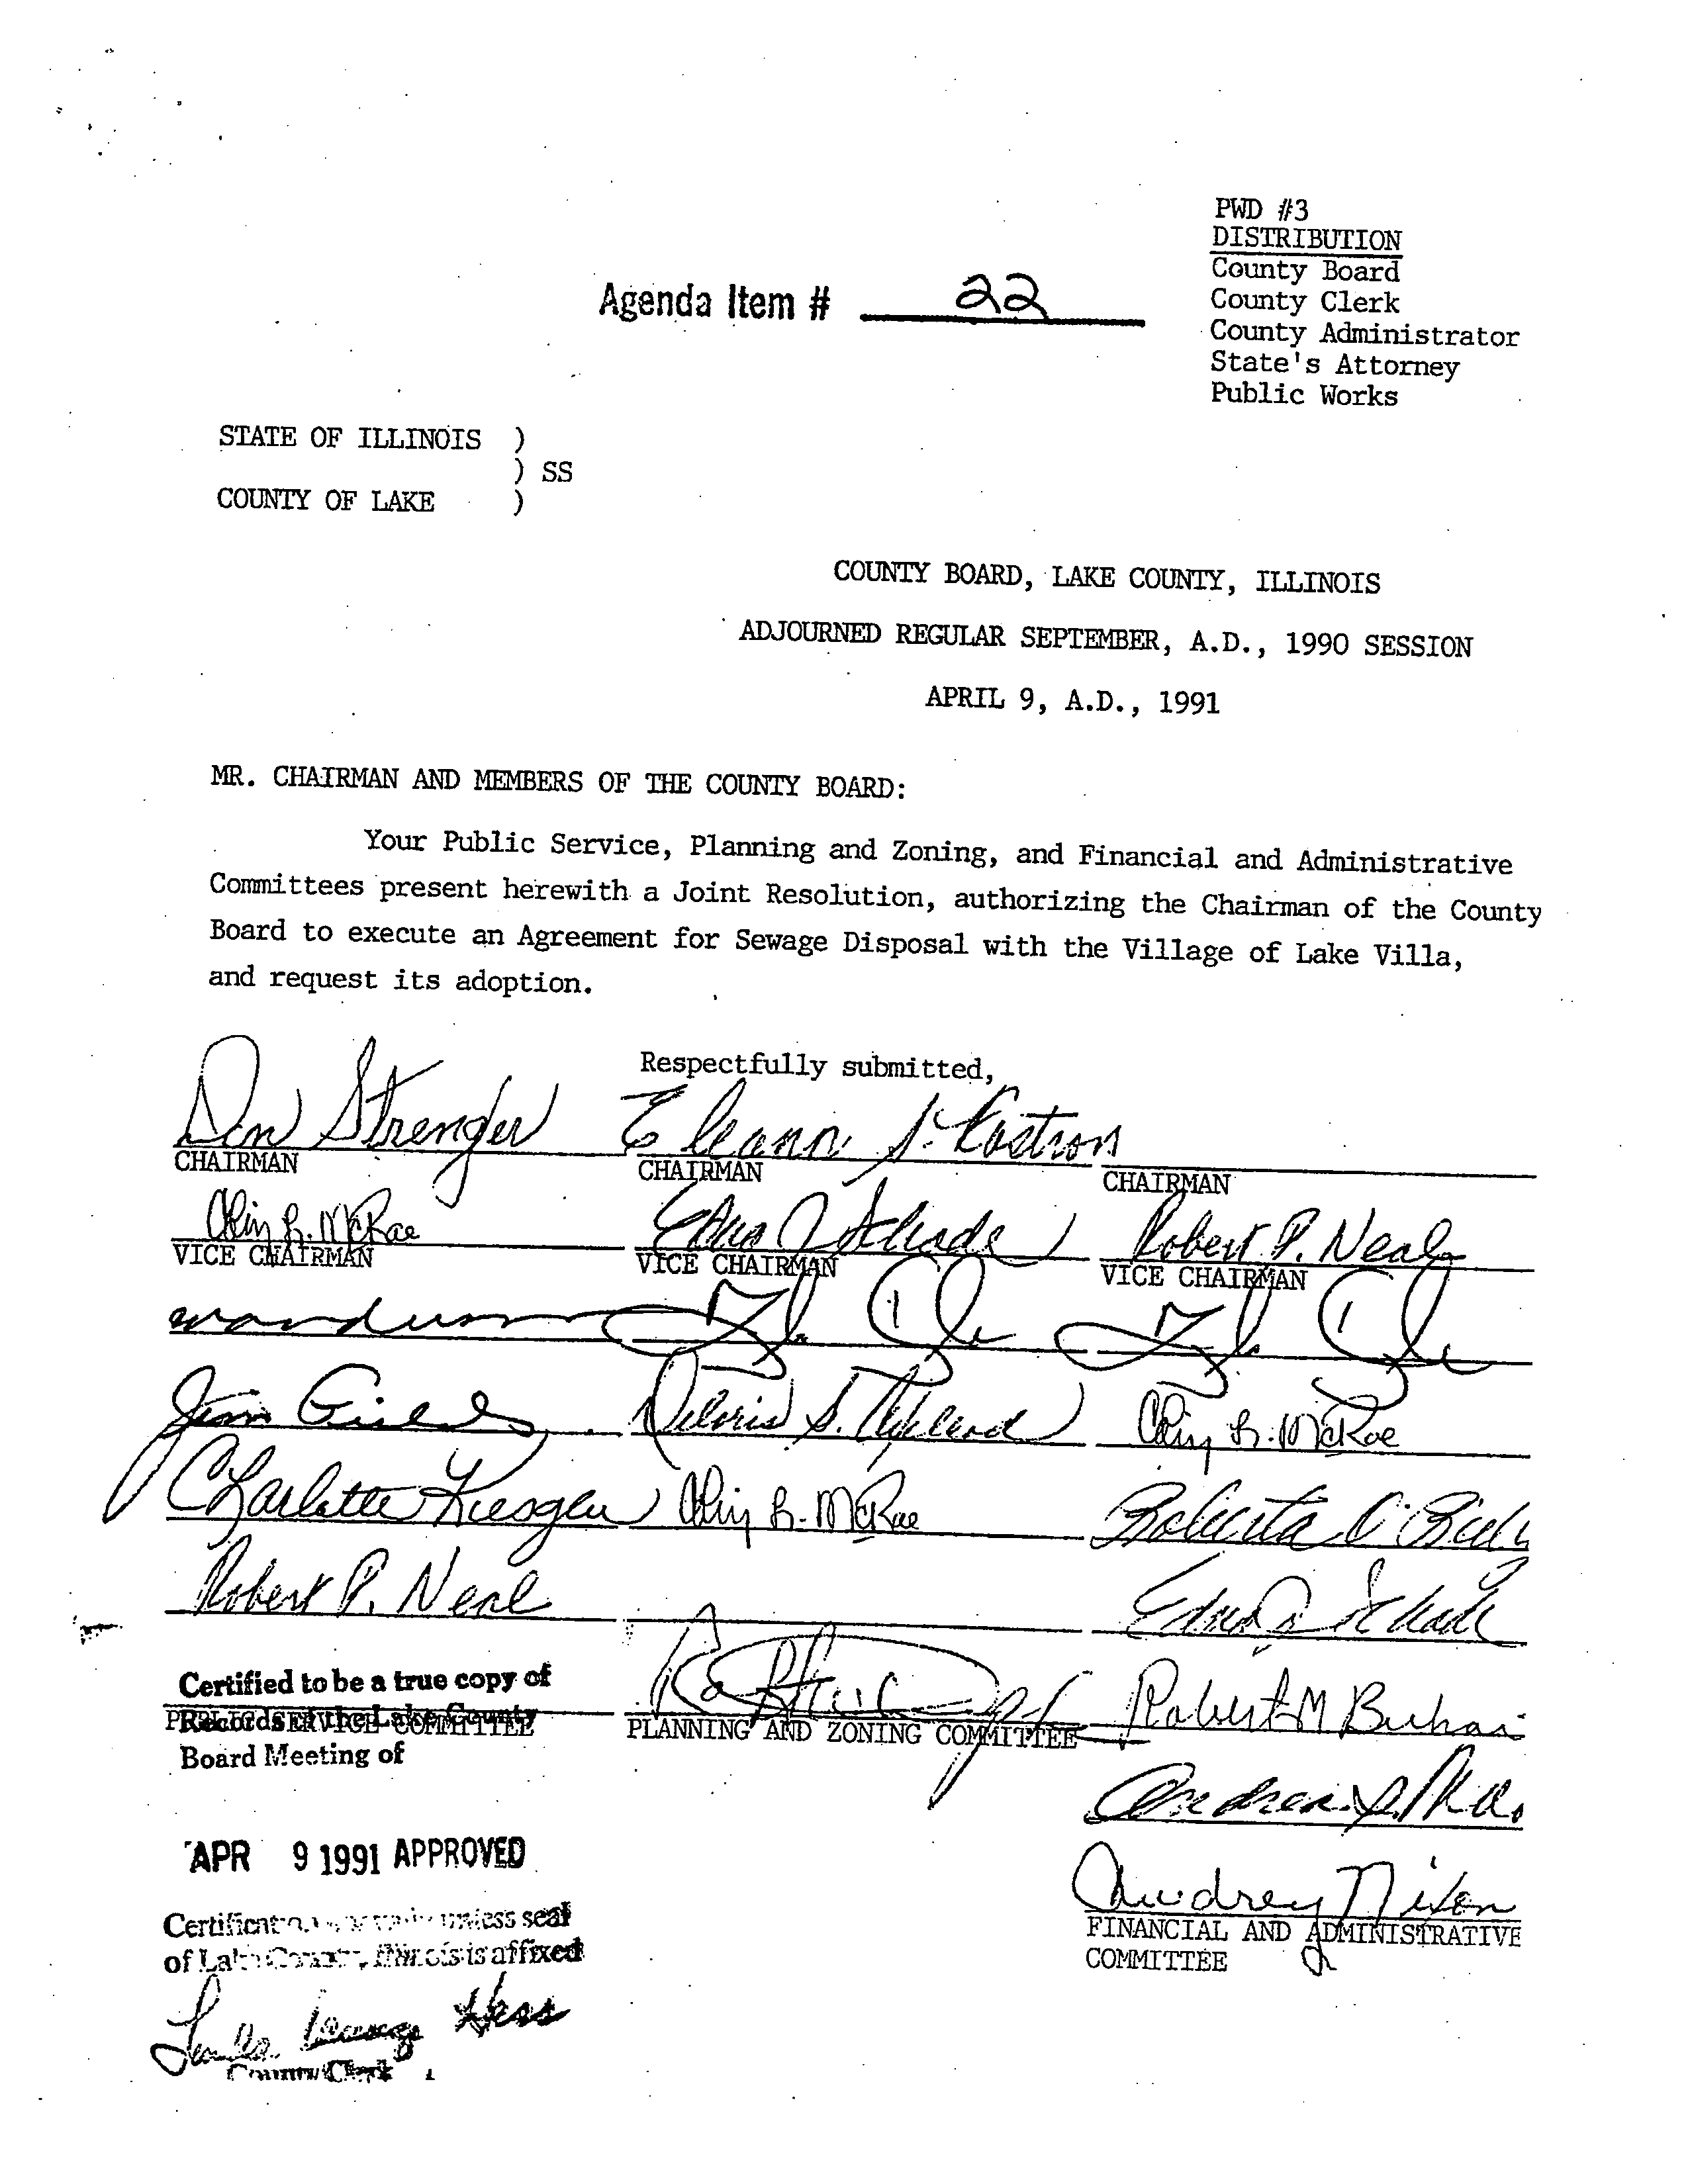 PWD #3
DISTRIBUTION
County Board
County Clerk
County Administrator
State's Attorney
Public Works
Agenda Item # 22
STATE OF ILLINOIS )
) SS
COUNTY OF LAKE )
COUNTY BOARD, LAKE COUNTY, ILLINOIS
ADJOURNED REGULAR SEPTEMBER, A.D., 1990 SESSION
APRIL 9, A.D., 1991
MR. CHAIRMAN AND MEMBERS OF THE COUNTY BOARD:
Your Public Service, Planning and Zoning, and Financial and Administrative
Committees present herewith a Joint Resolution, authorizing the Chairman of the County
Board to execute an Agreement for Sewage Disposal with the Village of Lake Villa,
and request its adoption.
Respectfully submitted,
Don Strenger
CHAIRMAN CHAIRMAN CHAIRMAN
McRae Robert P. Neal
VICE CHAIRMAN VICE CHAIRMAN VICE CHAIRMAN
Jim McRae
Charlotte McRae Roberta
Robert P. Neal
PUBLIC SERVICE COMMITTEE
PLANNING AND ZONING COMMITTEE
Robert M
Audrey Nixon
FINANCIAL AND ADMINISTRATIVE
COMMITTEE
Certified to be a true copy of
Records of the Lake County
Board Meeting of
APR 9 1991 APPROVED
unless seal
of Lake County, Illinois is affixed
Hess
County Clerk